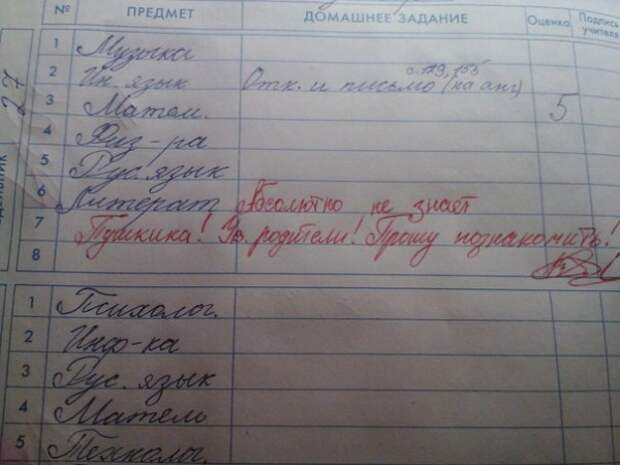 № ПРЕДМЕТ ДОМАШНЕЕ ЗАДАНИЕ Оценка Подпись учителя
1 Музыка
2 Ин. язык Отк. и письмо (на анг) с. 129, 155
3 Матем. 5
4 Физ-ра
5 Рус. язык
6 Литерат. Абсолютно не знает
7 Пушкина! Ув. родители! Прошу познакомить!
8
27
1 Психолог.
2 Инф-ка
3 Рус. язык
4 Матем
5 Технолог.